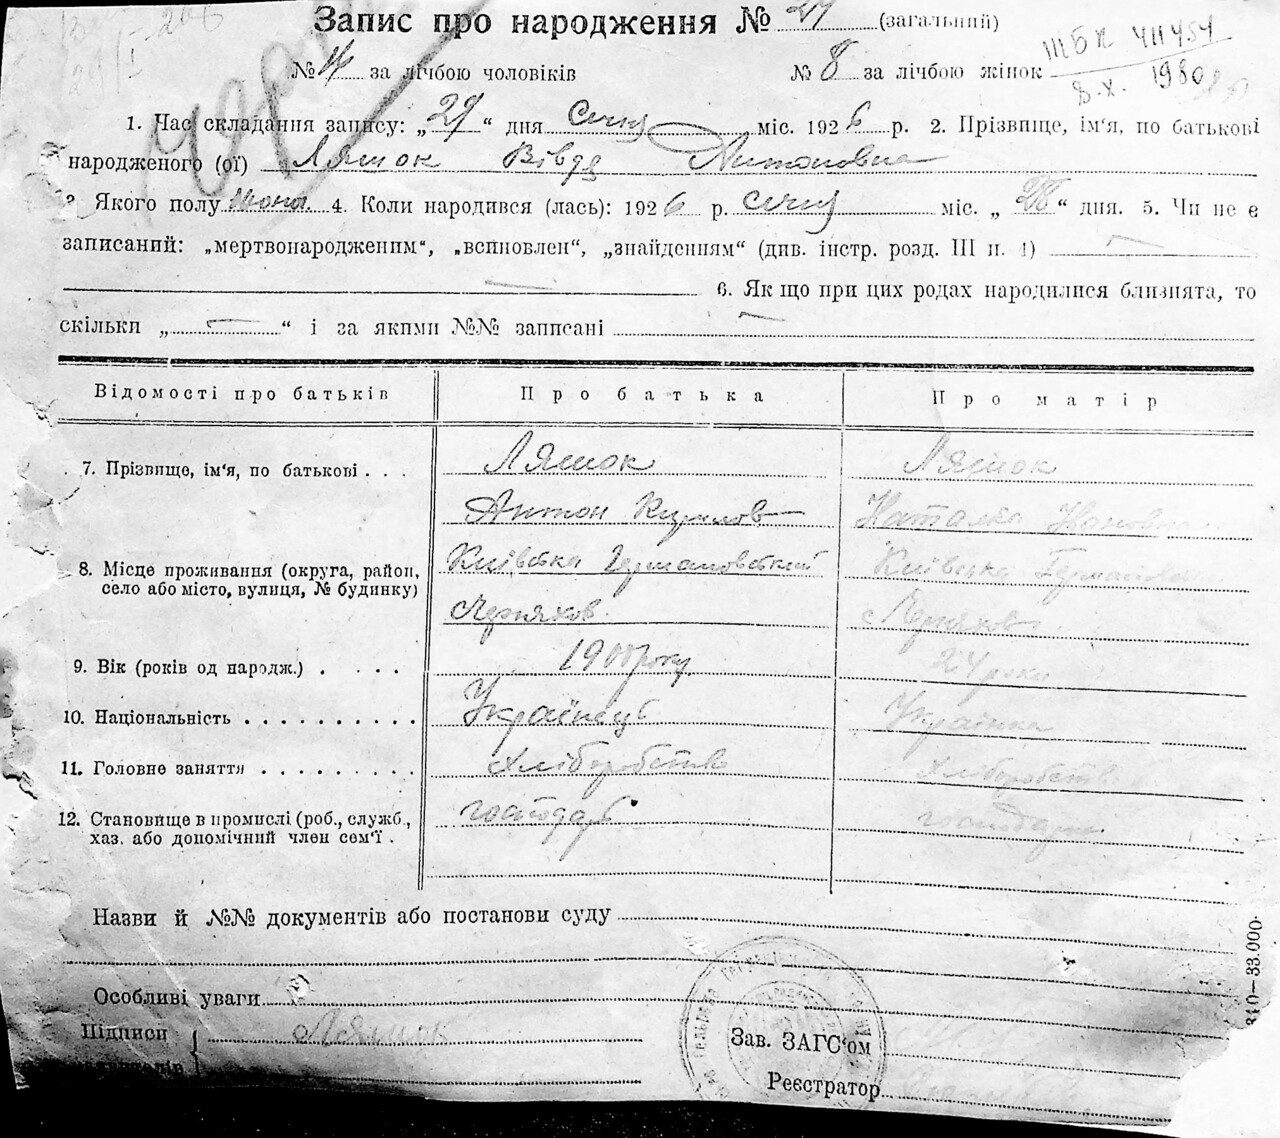 Запис про народження № 27 (загальний)
№ за лічбою чоловіків № 8 за лічбою жінок
ІІІБК 411454
8.Х. 1980
1. Час складання запису: „29“ дня січня міс. 1926 р. 2. Прізвище, ім'я, по батькові
народженого (ої) Ляшок Вівдя Антоновна
3. Якого полу жіноч. 4. Коли народився (лась): 1926 р. січня міс. „28“ дня. 5. Чи не є
записаний: „мертвонародженим“, „всиновлен“, „знайденням“ (див. інстр. розд. III п. 4) —
— 6. Як що при цих родах народилися близнята, то
скільки „—“ і за якими №№ записані —
Відомості про батьків Про батька Про матір
7. Прізвище, ім'я, по батькові . . . Ляшок Ляшок
Антон Кирилов Наталка Івановна
8. Місце проживання (округа, район, Київська Германовський Київська
село або місто, вулиця, № будинку) с Черняхов с Черняхов
9. Вік (років од народж.) . . . . 1900 року 24 роки
10. Національність . . . . . . . . . . Українець Українка
11. Головне заняття . . . . . . . . . Хліборобство Хліборобство
12. Становище в промислі (роб., служб., господарь
хаз. або допомічний член сем'ї .
Назви й №№ документів або постанови суду
Особливі уваги
Підписи Ляшок
Зав. ЗАГС'ом
Реєстратор
310—33.000.